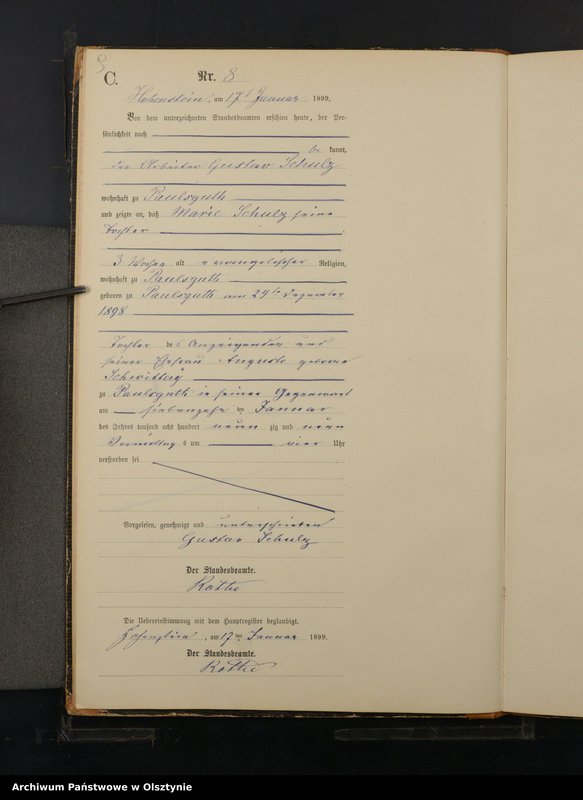 8
C.
Nr. 8
Hohenstein, am 17t Januar 1899.
Vor dem unterzeichneten Standesbeamten erschien heute, der Per-
sönlichkeit nach
be kannt,
der Arbeiter Gustav Schulz
wohnhaft zu Paulsguth
und zeigte an, daß Marie Schulz seine
Tochter
3 Wochen alt evangelischer Religion,
wohnhaft zu Paulsguth
geboren zu Paulsguth am 24ten Dezember
1898
Tochter des Anzeigenden und
seiner Ehefrau Auguste geborene
zu Paulsguth in seiner Gegenwart
am siebenzehn ten Januar
des Jahres tausend acht hundert neun zig und neun
Vormittag s um vier Uhr
verstorben sei
Vorgelesen, genehmigt und unterschrieben
Gustav Schulz
Der Standesbeamte.
Die Uebereinstimmung mit dem Hauptregister beglaubigt.
Hohenstein, am 17ten Januar 1899.
Der Standesbeamte.
Archiwum Państwowe w Olsztynie